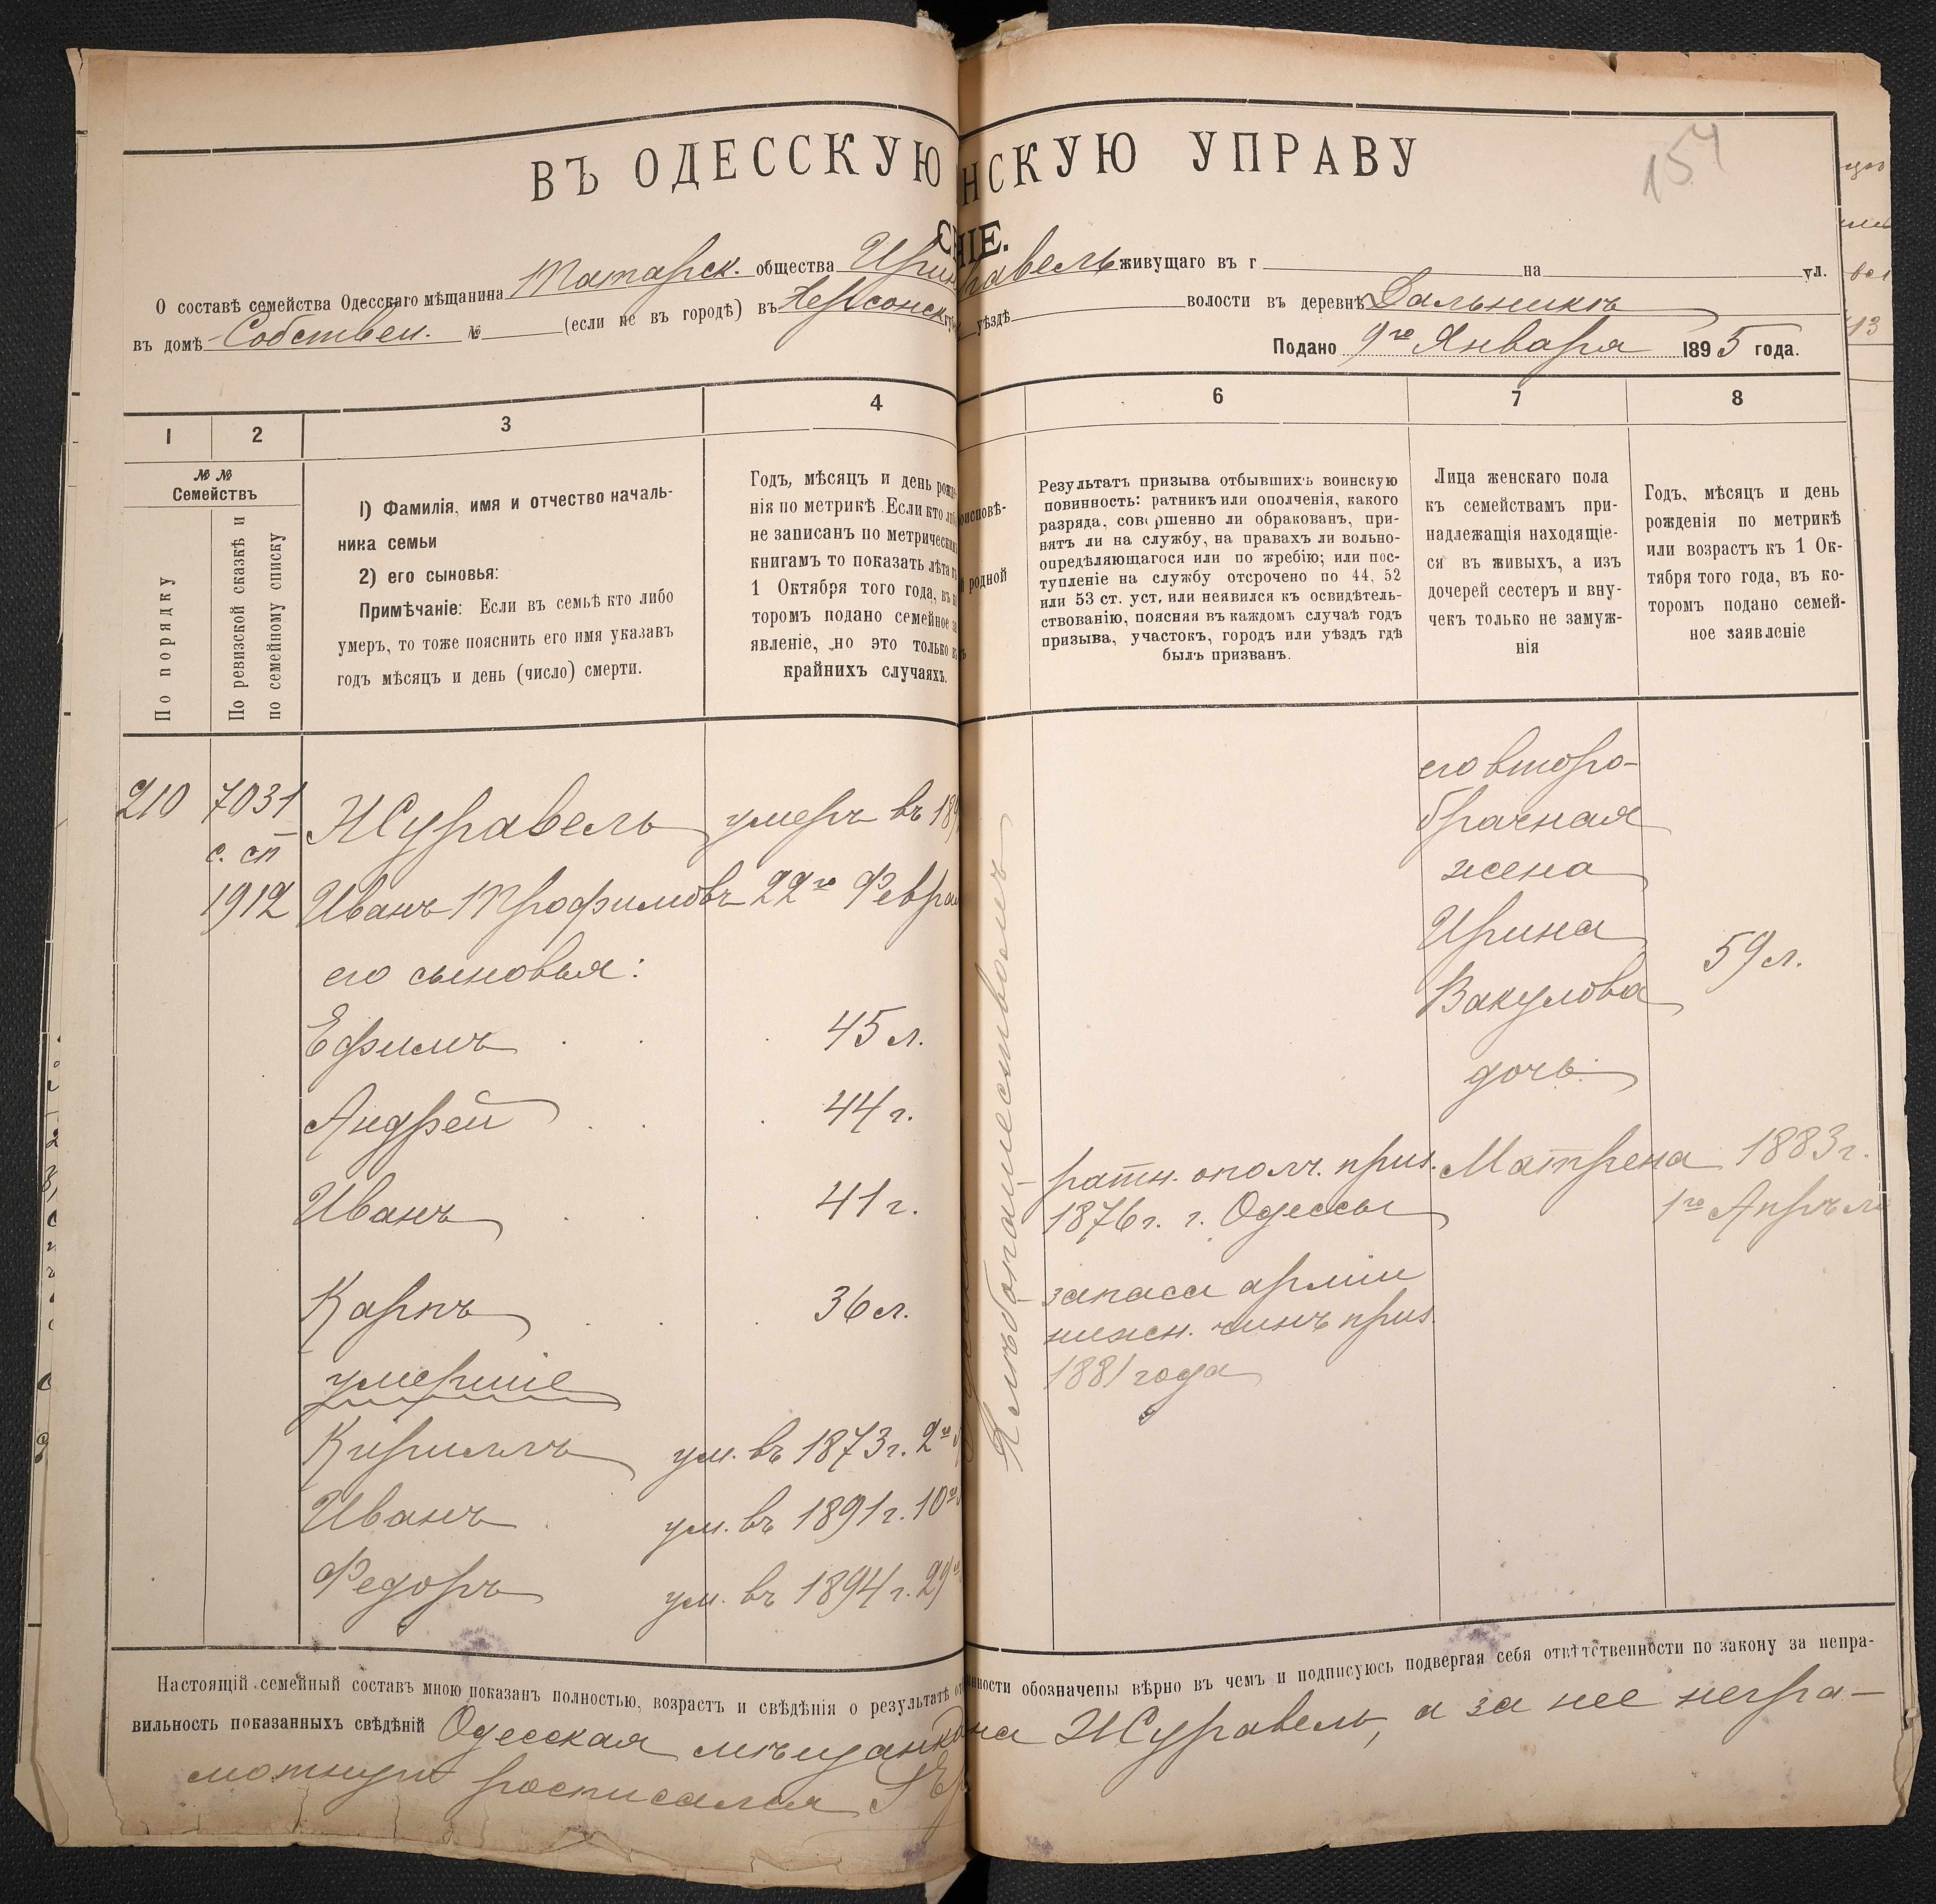 154
ВЪ ОДЕССКУЮ НСКУЮ УПРАВУ
НІЕ.
О составѣ семейства Одесскаго мѣщанина Татарск. общества Ирин равель живущаго въ г на ул.
въ домѣ Собствен. № (если не въ городѣ) въ Херсонск уѣздѣ волости въ деревнѣ Дальникъ
Подано 9го Января 1895 года.
1 2 3 4 6 7 8
№ №
Семействъ
По порядку
По ревизской сказкѣ и
по семейному списку
1) Фамилія, имя и отчество началь-
ника семьи
2) его сыновья:
Примѣчаніе: Если въ семьѣ кто либо
умеръ, то тоже пояснить его имя указавъ
годъ мѣсяцъ и день (число) смерти.
Годъ, мѣсяцъ и день рожде
нія по метрикѣ. Если кто
не записанъ по метрическим
книгамъ то показать лѣта
1 Октября того года, въ
торомъ подано семейное
явленіе, но это только
крайнихъ случаяхъ.
оисповѣ-
родной
Результатъ призыва отбывшихъ воинскую
повинность: ратникъ или ополченія, какого
разряда, совершенно ли обракованъ, при-
нятъ ли на службу, на правахъ ли вольно-
опредѣляющагося или по жребію; или пос-
тупленіе на службу отсрочено по 44, 52
или 53 ст. уст, или неявился къ освидѣтель-
ствованію, поясняя въ каждомъ случаѣ годъ
призыва, участокъ, городъ или уѣздъ гдѣ
былъ призванъ.
Лица женскаго пола
къ семействамъ при-
надлежащія находящіе-
ся въ живыхъ, а изъ
дочерей сестеръ и вну-
чекъ только не замуж-
нія
Годъ, мѣсяцъ и день
рожденія по метрикѣ
или возрастъ къ 1 Ок-
тября того года, въ ко-
торомъ подано семей-
ное заявленіе
210 7031 Журавель умеръ въ 189
с. сп
1912 Иванъ Трофимовъ 22го Февра
его сыновья:
Ефимъ 45 л.
Андрей 44 г.
Иванъ 41 г.
Карпъ 36 л.
умершіе
Кириллъ ум. въ 1873 г. 2го
Иванъ ум. въ 1891 г. 10го
Федоръ ум. въ 1894 г. 29го
Хлѣбопашествомъ
ратн. ополч. приз.
1876 г. г. Одессы
запаса арміи
нижн. чинъ приз.
1881 года
его второ-
брачная
жена
Ирина
Вакулова
59 л.
дочь
Матрена 1883 г.
1го Апрѣля
Настоящій семейный составъ мною показанъ полностью, возрастъ и свѣдѣнія о результатѣ от нности обозначены вѣрно въ чемъ и подписуюсь подвергая себя отвѣтственности по закону за непра-
вильность показанныхъ свѣдѣній Одесская мѣщанка на Журавель, а за нее негра-
мотную росписался